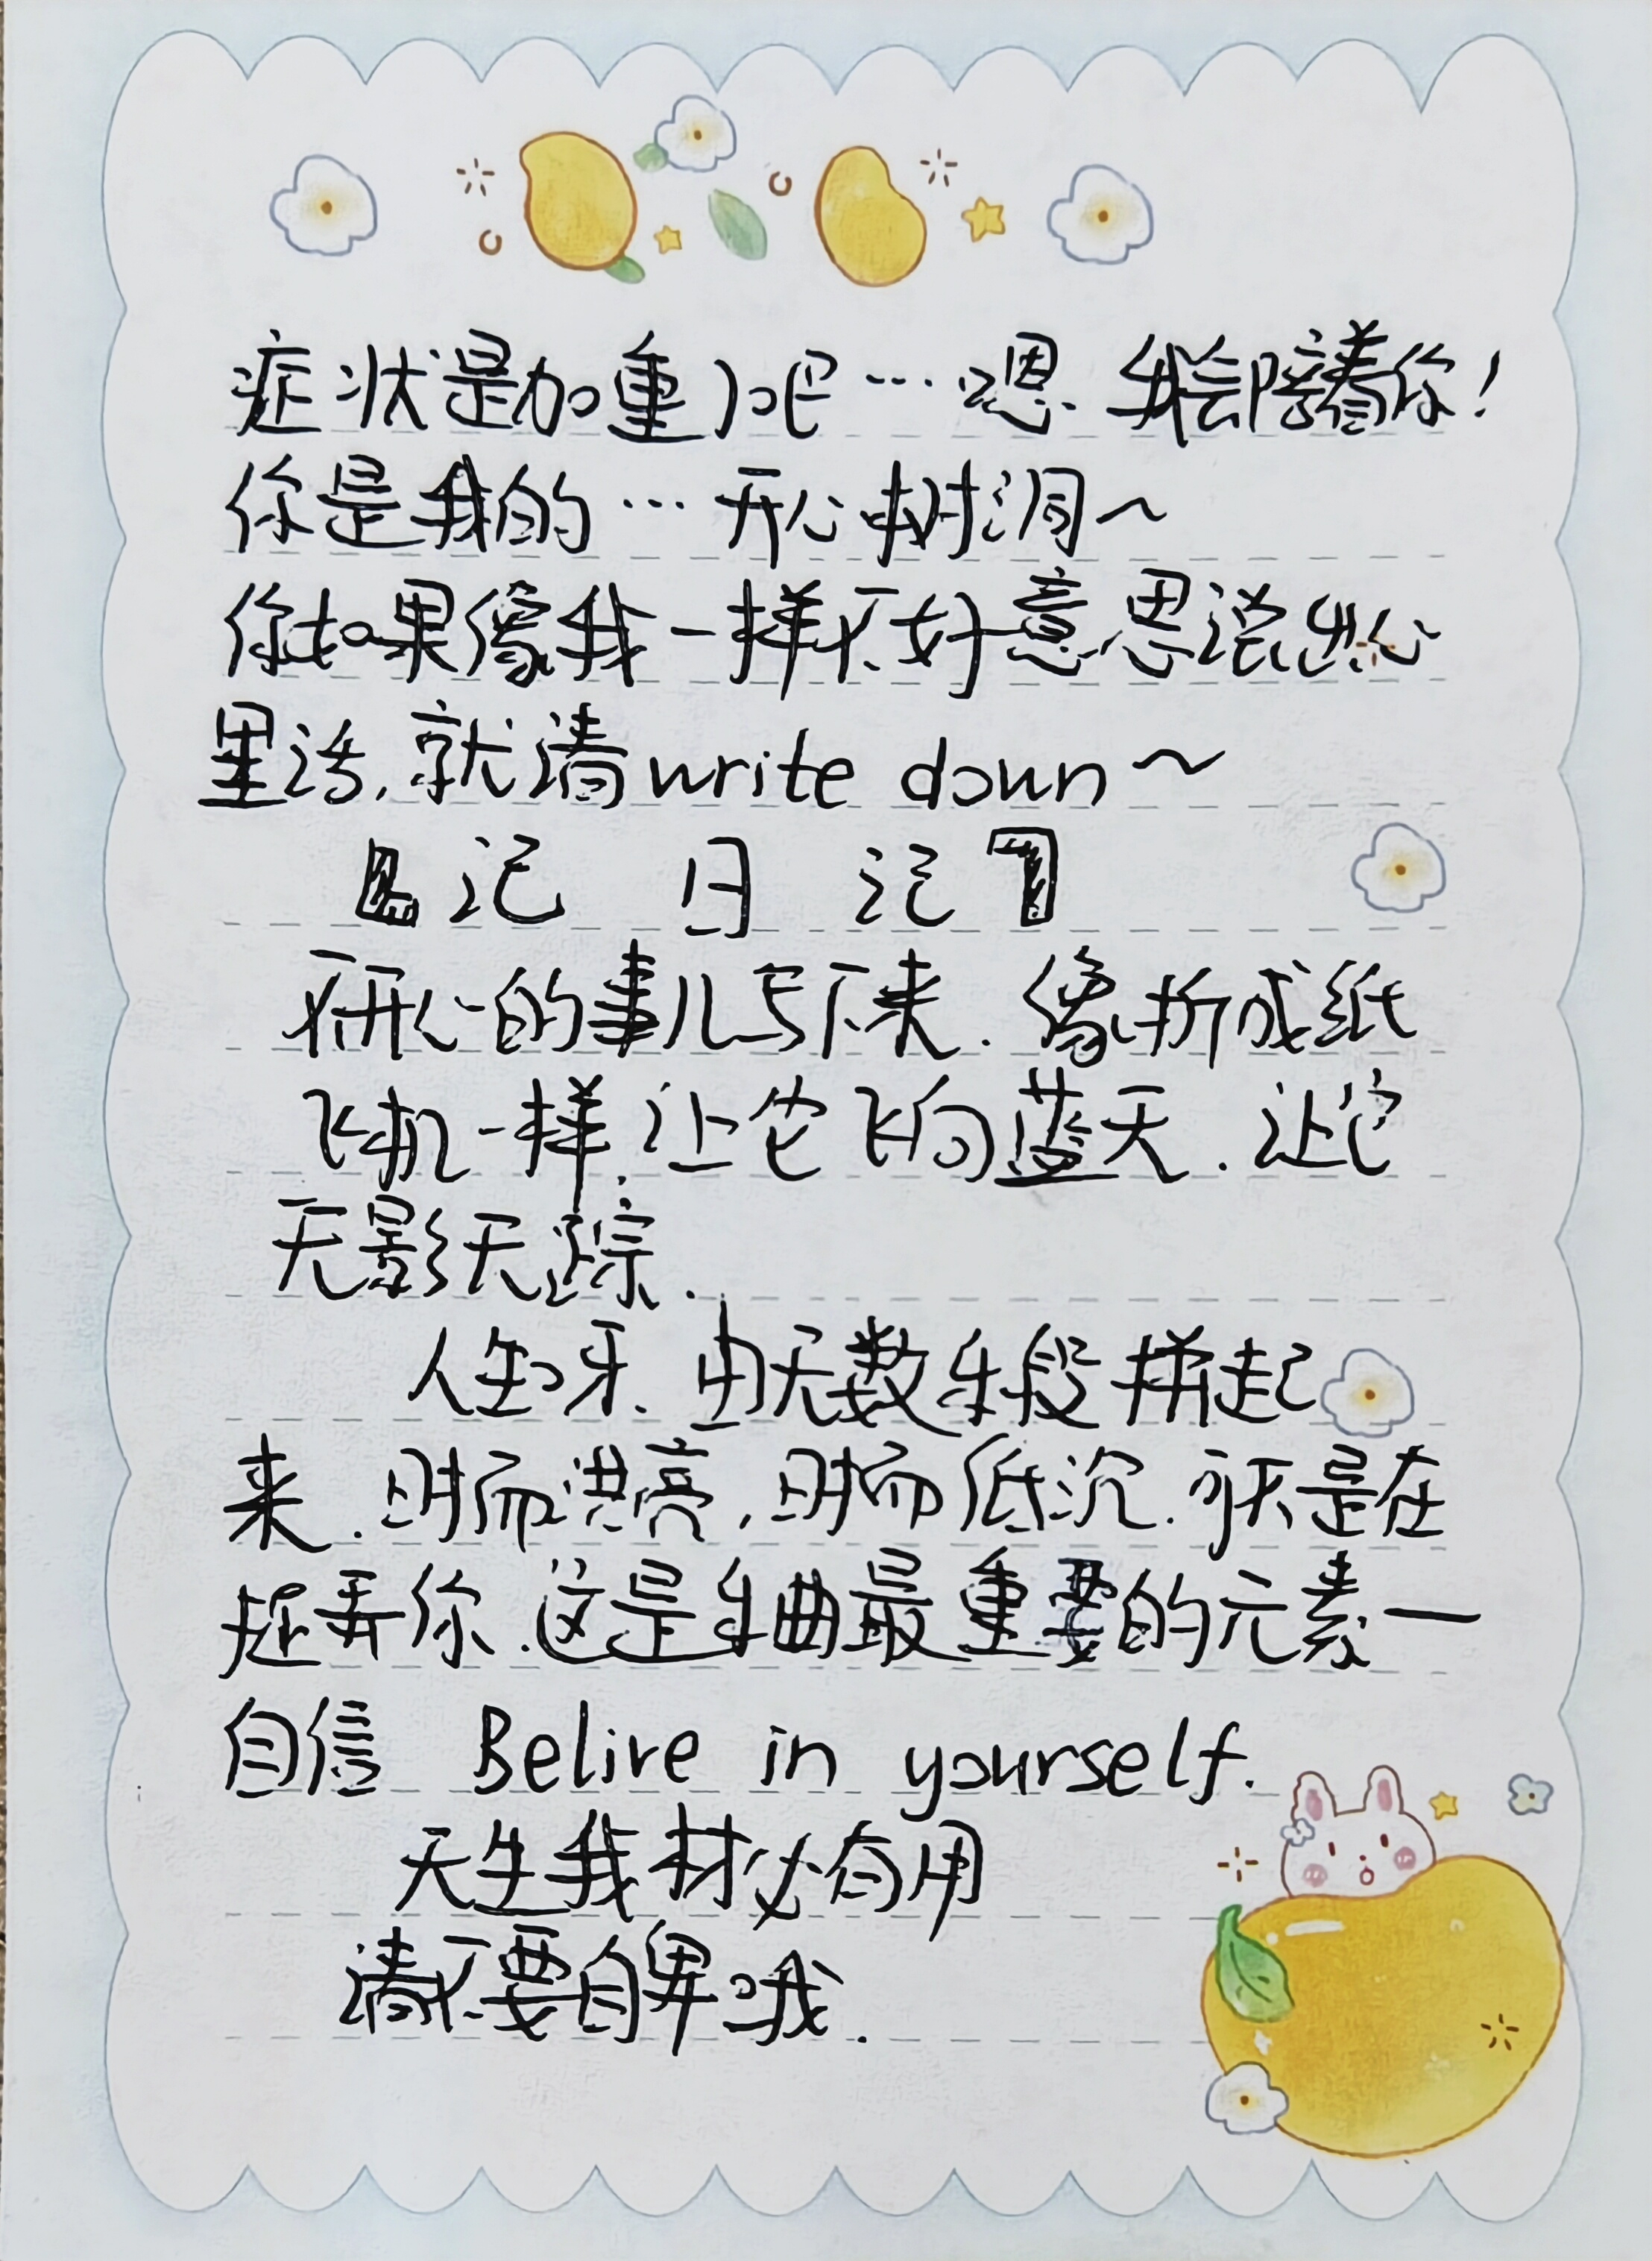 症状是加重了吧…嗯.我会陪着你!
你是我的…开心树洞~
你如果像我一样不好意思说出心
里话,就请write down~
『记 日 记』
不开心的事儿写下来.像折成纸
飞机一样.让它飞向蓝天.让它
无影无踪.
人生呀.由无数片段拼起
来.时而洪亮,时而低沉.可不是在
捉弄你.这是乐曲最重要的元素—
自信 Belive in yourself.
天生我材必有用
请不要自卑哦.